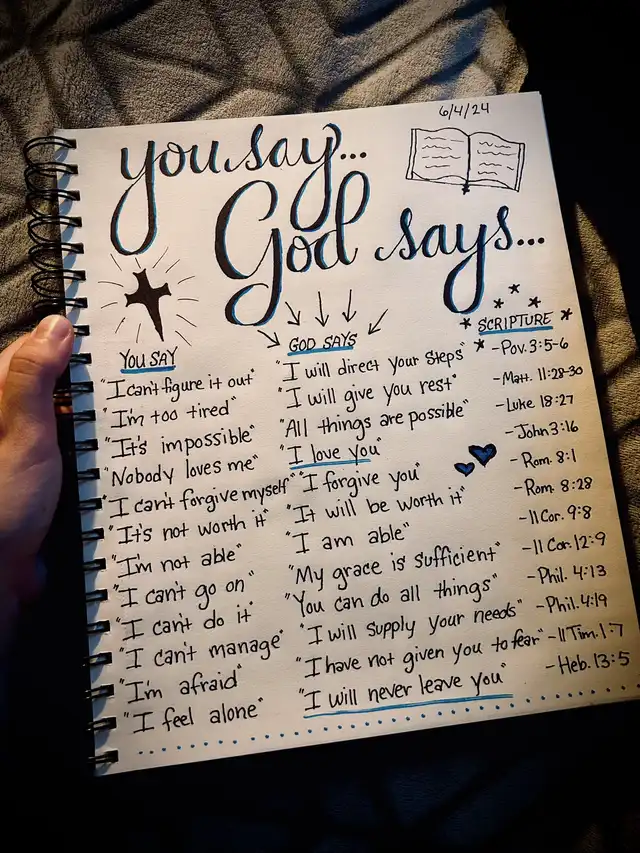 6/4/24
you say...
God says...
YOU SAY
"I can't figure it out"
"I'm too tired"
"It's impossible"
"Nobody loves me"
"I can't forgive myself"
"It's not worth it"
"I'm not able"
"I can't go on"
"I can't do it"
"I can't manage"
"I'm afraid"
"I feel alone"
GOD SAYS
"I will direct your steps"
"I will give you rest"
"All things are possible"
"I love you"
"I forgive you"
"It will be worth it"
"I am able"
"My grace is sufficient"
"You can do all things"
"I will supply your needs"
"I have not given you to fear"
"I will never leave you"
SCRIPTURE
-Pov. 3:5-6
-Matt. 11:28-30
-Luke 18:27
-John 3:16
-Rom. 8:1
-Rom. 8:28
-II Cor. 9:8
-II Cor. 12:9
-Phil. 4:13
-Phil. 4:19
-II Tim. 1:7
-Heb. 13:5